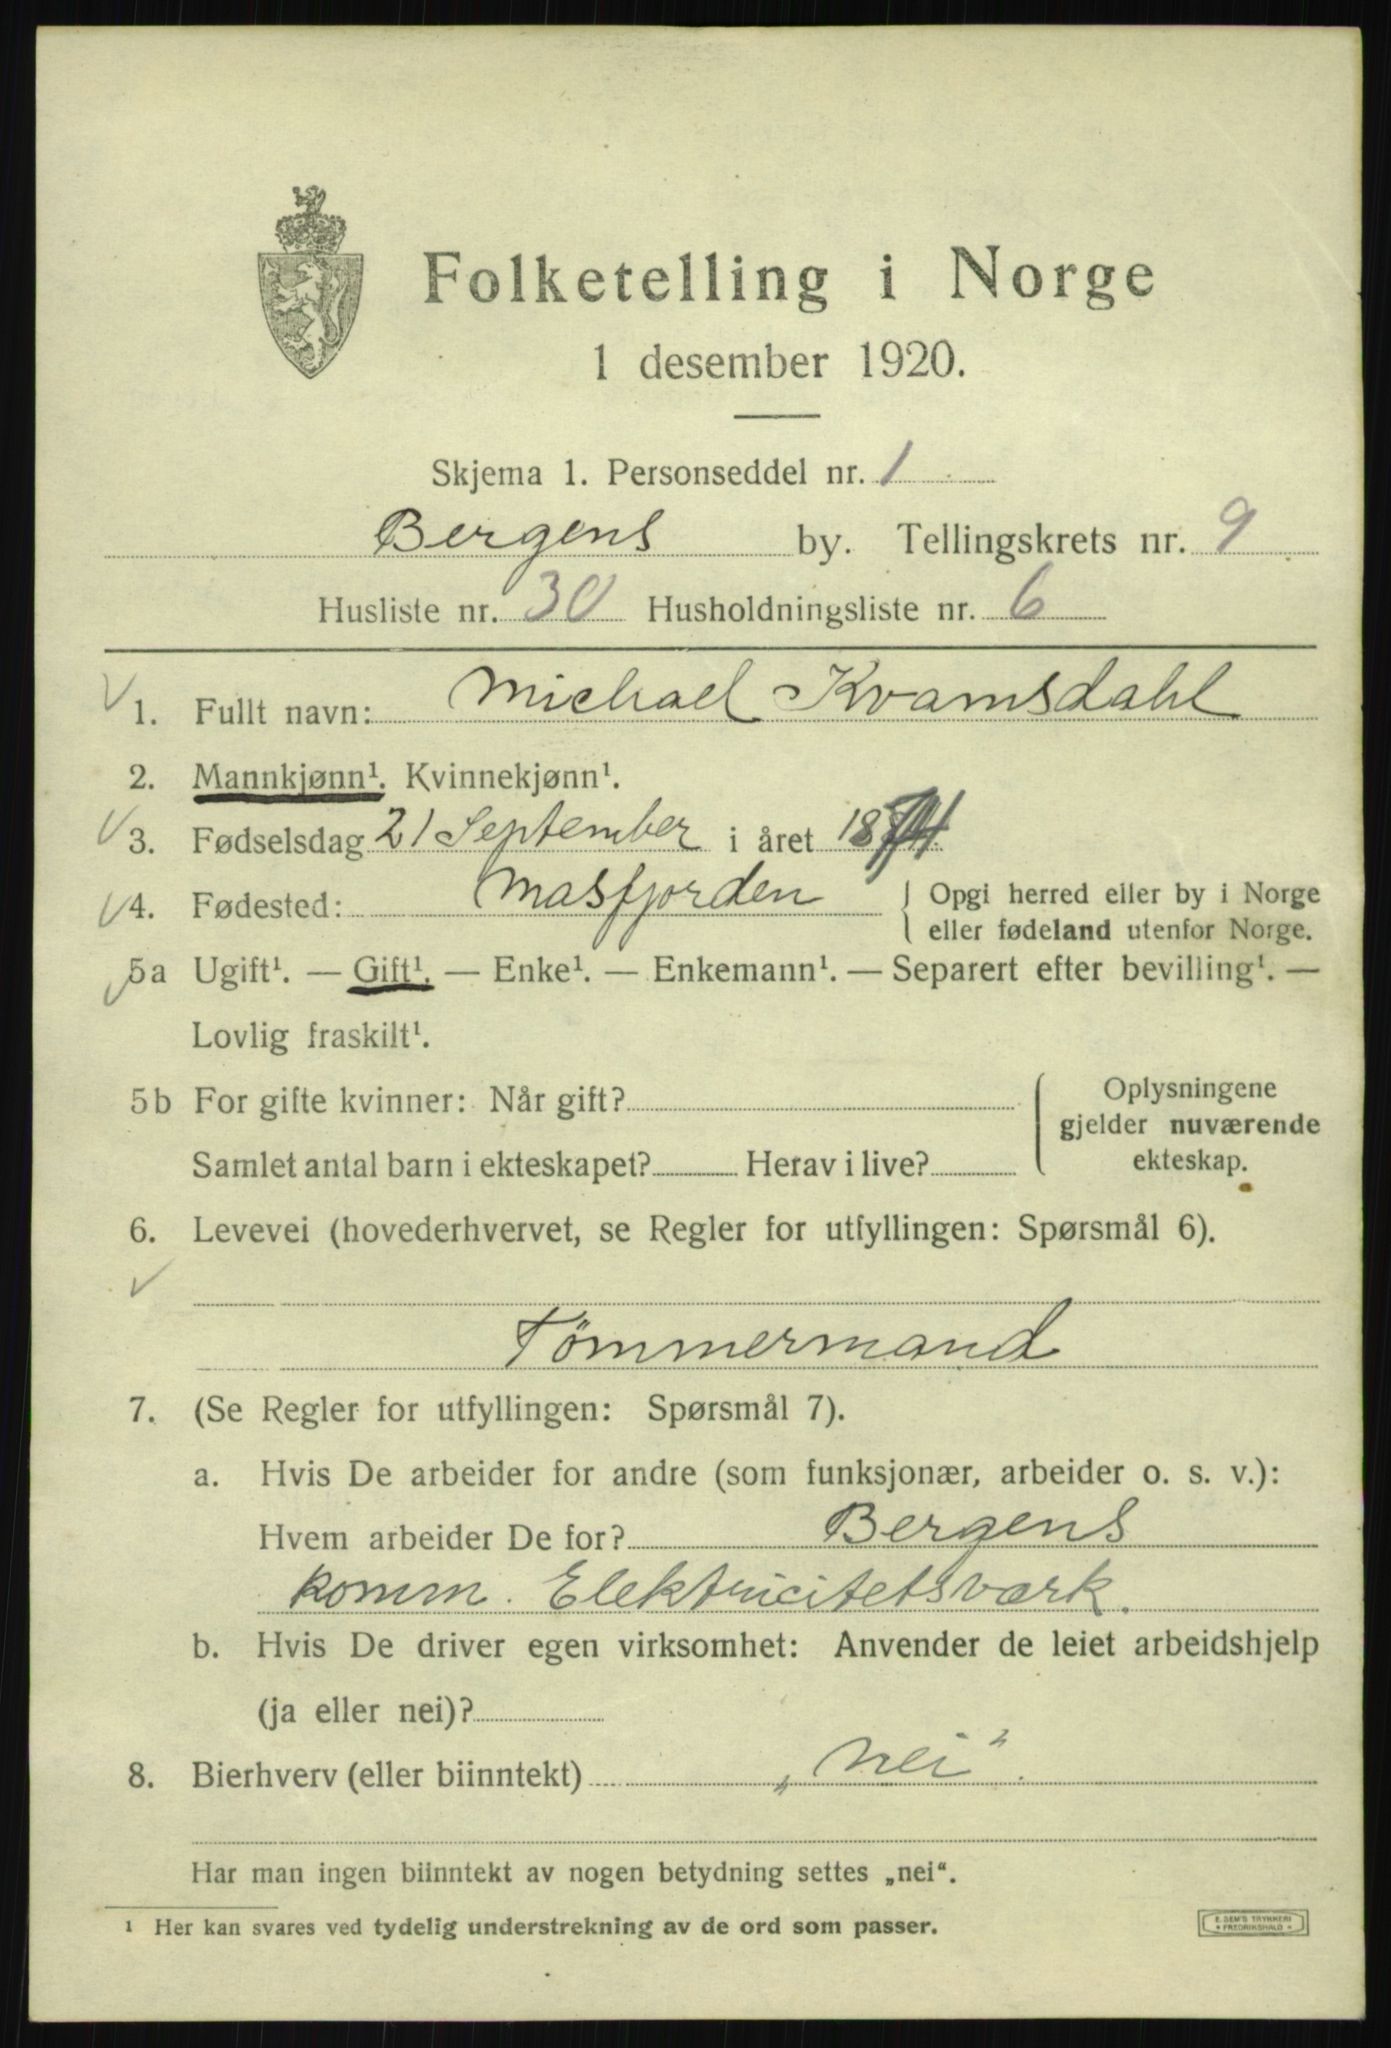 Folketelling i Norge
1 desember 1920.
Skjema 1. Personseddel nr. 1
Bergens by. Tellingskrets nr. 9
Husliste nr. 30 Husholdningsliste nr. 6
1. Fullt navn: Michael Kvamsdahl
2. Mannkjønn¹. Kvinnekjønn¹.
3. Fødselsdag 21 September i året 1874
4. Fødested: Masfjorden
Opgi herred eller by i Norge
eller fødeland utenfor Norge.
5a Ugift¹. — Gift¹. — Enke¹. — Enkemann¹. — Separert efter bevilling¹. —
Lovlig fraskilt¹.
5b For gifte kvinner: Når gift?
Samlet antal barn i ekteskapet? Herav i live?
Oplysningene
gjelder nuværende
ekteskap.
6. Levevei (hovederhvervet, se Regler for utfyllingen: Spørsmål 6).
Tömmermand
7. (Se Regler for utfyllingen: Spørsmål 7).
a. Hvis De arbeider for andre (som funksjonær, arbeider o. s. v.):
Hvem arbeider De for? Bergens
komm. Elektricitetsværk.
b. Hvis De driver egen virksomhet: Anvender de leiet arbeidshjelp
(ja eller nei)?
8. Bierhverv (eller biinntekt) „nei".
Har man ingen biinntekt av nogen betydning settes „nei“.
¹ Her kan svares ved tydelig understrekning av de ord som passer.
E. SEM'S TRYKKERI
* FREDRIKSHALD *